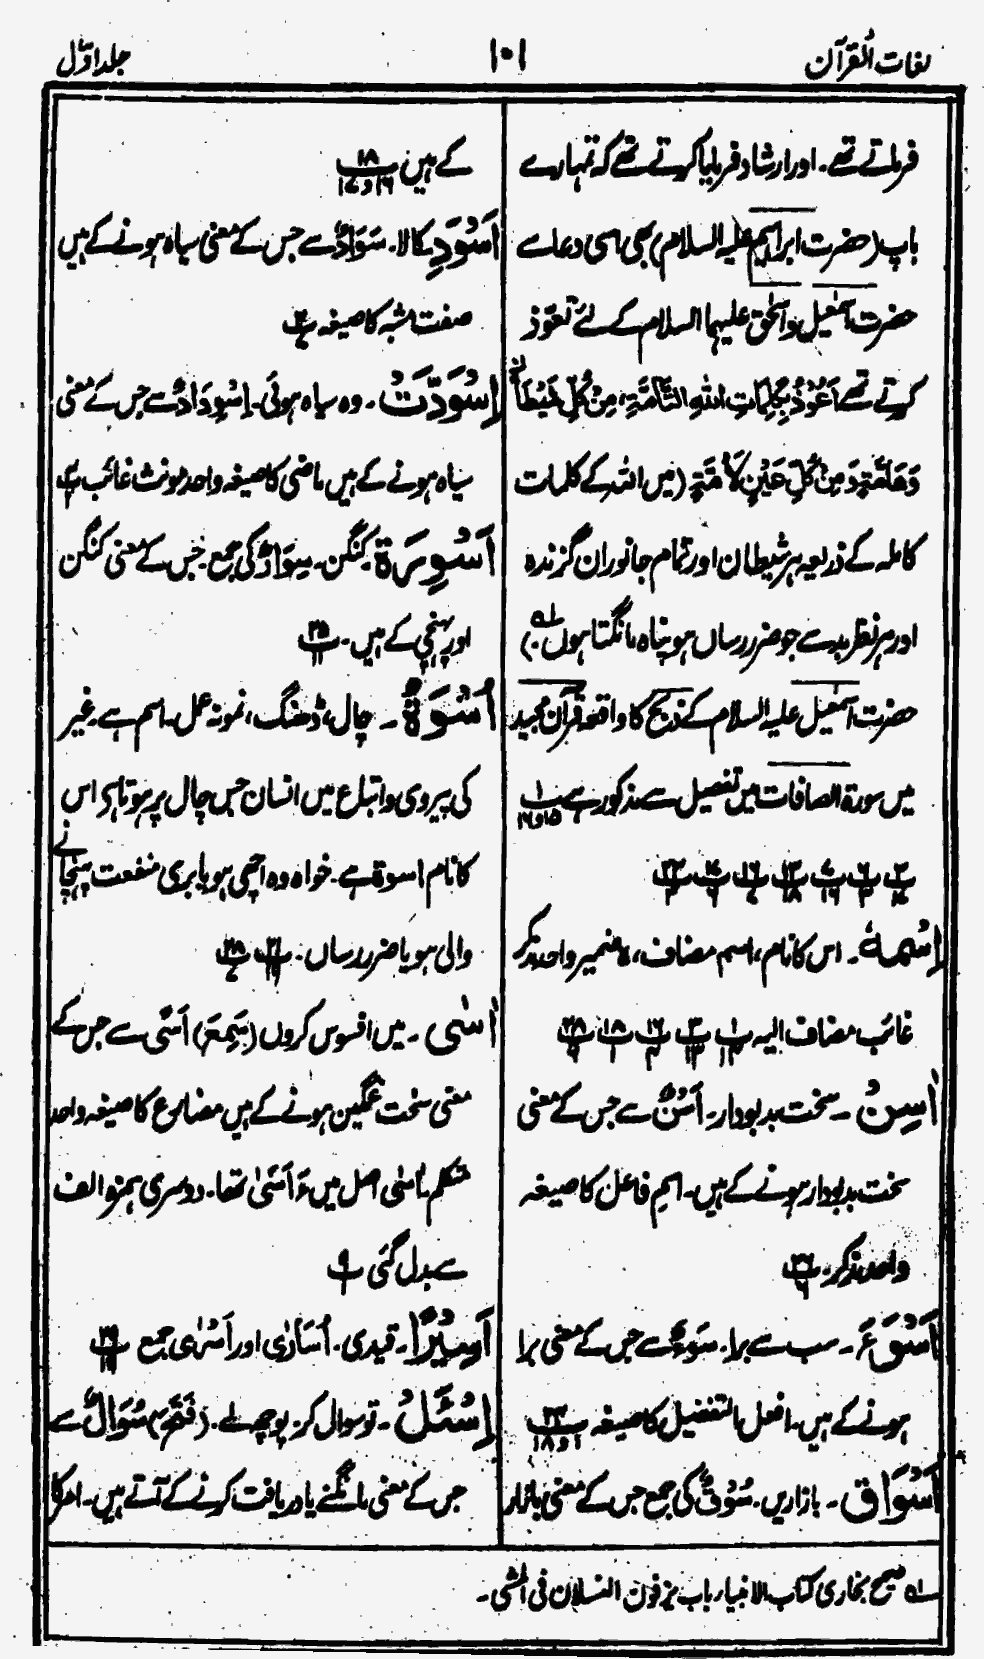 لغات القرآن
۱۰۱
جلد اوّل
فرماتے تھے۔ اور ارشاد فرمایا کرتے تھے کہ تمہارے
باپ (حضرت ابراہیم علیہ السلام) بھی اسی دعا سے
حضرت اسمٰعیل و اسحٰق علیہما السلام کے لئے تعوّذ
کرتے تھے اَعُوْذُ بِکَلِمَاتِ اللّٰہِ التَّآمَّۃِ، مِنْ کُلِّ شَیْطَانٍ
وَھَامَّۃٍ وَمِنْ کُلِّ عَیْنٍ لَامَّۃٍ (میں اللہ کے کلمات
کاملہ کے ذریعہ ہر شیطان اور تمام جانوران گزندہ
اور ہر نظر بد سے جو ضرر رساں ہو پناہ مانگتا ہوں۔) لہ
حضرت اسمٰعیل علیہ السلام کے ذبح کا واقعہ قرآن مجید
میں سورۃ الصافات میں تفصیل سے مذکور ہے پ ۱ ۱۵و۱۶
اِسْمُہٗ۔ اس کا نام، اسم مضاف، ہٗ ضمیر واحد مذکر
غائب مضاف الیہ
اٰسِنٍ۔ سخت بدبودار۔ اَسْنٌ سے جس کے معنی
سخت بدبودار ہونے کے ہیں۔ اسمِ فاعل کا صیغہ
واحد مذکر۔ پ ۲۶ ۶
اَسْوَءَ۔ سب سے برا۔ سَوْءٌ سے جس کے معنی برا
ہونے کے ہیں۔ افعل التفضیل کا صیغہ پ
اَسْوَاق۔ بازاریں۔ سُوْقٌ کی جمع جس کے معنی بازار
کے ہیں پ ۱۸ ۱۶و۱۷
اَسْوَدِ کالا۔ سَوَادٌ سے جس کے معنی سیاہ ہونے کے ہیں
صفت مشبہ کا صیغہ پ
اِسْوَدَّتْ۔ وہ سیاہ ہوئی۔ اِسْوِدَادٌ سے جس کے معنی
سیاہ ہونے کے ہیں ماضی کا صیغہ واحد مونث غائب پ
اَسْوِرَۃٌ کنگن۔ سِوَارٌ کی جمع۔ جس کے معنی کنگن
اور پہنچی کے ہیں۔ پ ۲۵ ۱۱
اُسْوَۃٌ۔ چال، ڈھنگ، نمونہ عمل۔ اسم ہے۔ غیر
کی پیروی و اتباع میں انسان جس چال پر ہوتا ہے اس
کا نام اسوۃ ہے۔ خواہ وہ اچھی ہو یا بری منفعت پہنچانے
والی ہو یا ضرر رساں۔ پ ۲۱ ۱۹ پ ۲۸ ۷
اٰسٰی۔ میں افسوس کروں (سَمِعَ) اَسًی سے جس کے
معنی سخت غمگین ہونے کے ہیں مضارع کا صیغہ واحد
متکلم اٰسٰی اصل میں ءَاَسَیُ تھا۔ دوسری ہمزہ الف
سے بدل گئی پ ۹ ۱
اَسِیْرًا۔ قیدی۔ اُسَارٰی اور اَسْرٰی جمع پ ۲۹ ۱۹
اِسْئَلْ۔ تو سوال کر۔ پوچھ لے۔ (فَتَحَ) سُوَالٌ سے
جس کے معنی مانگنے یا دریافت کرنے کے آتے ہیں۔ امر کا
لہ صحیح بخاری کتاب الانبیاء باب یزفون النسلان فی المشی۔